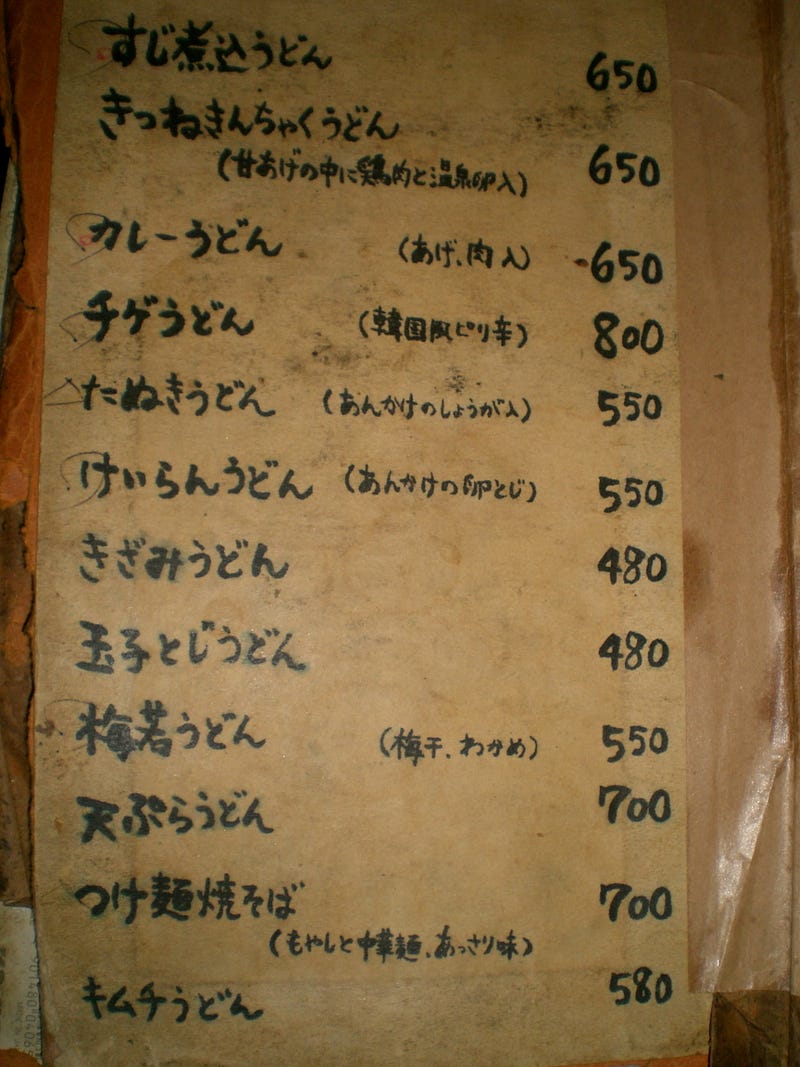 すじ煮込うどん 650
きつねきんちゃくうどん
(甘あげの中に鶏肉と温泉卵入) 650
カレーうどん (あげ、肉入) 650
チゲうどん (韓国風ピリ辛) 800
たぬきうどん (あんかけのしょうが入) 550
けいらんうどん (あんかけの卵とじ) 550
きざみうどん 480
玉子とじうどん 480
梅若うどん (梅干、わかめ) 550
天ぷらうどん 700
つけ麺焼そば 700
(もやしと中華麺、あっさり味)
キムチうどん 580